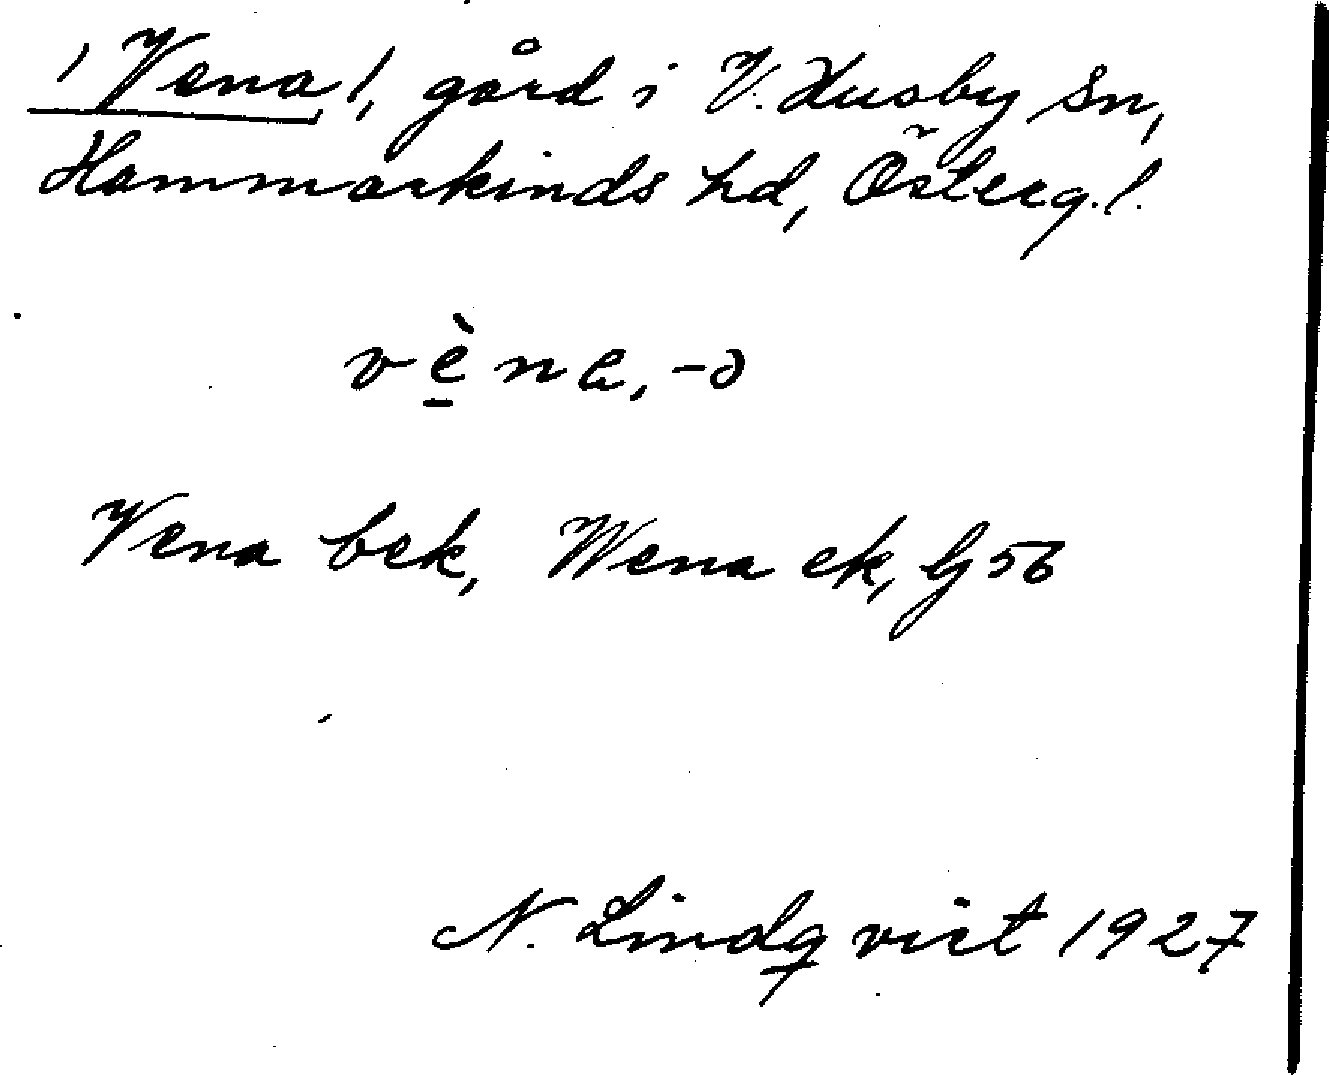 ! Vena !, gård i V. Husby sn,
Hammarkinds hd, Österg.l.
vèna, -ə
Vena bek, Wena ek, Gj 56
N. Lindqvist 1927